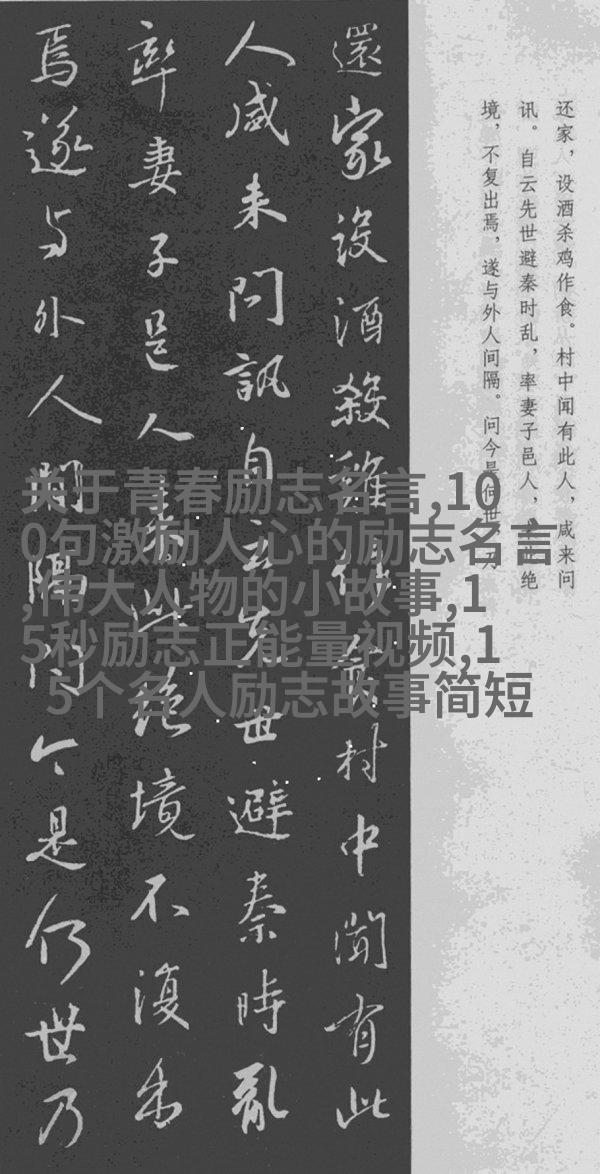 还家，设酒杀鸡作食。村中闻有此人，咸来问
讯。自云先世避秦时乱，率妻子邑人，来此绝
境，不复出焉，遂与外人间隔。问今是何世，乃
還家設酒殺雞作食村中聞有此
人咸来問訊自云先世避秦時亂
率妻子邑人来此絶境不復出
焉遂与外人間隔問今是何世乃
关于青春励志名言,10
0句激励人心的励志名言
,伟大人物的小故事,1
5秒励志正能量视频,1
5个名人励志故事简短